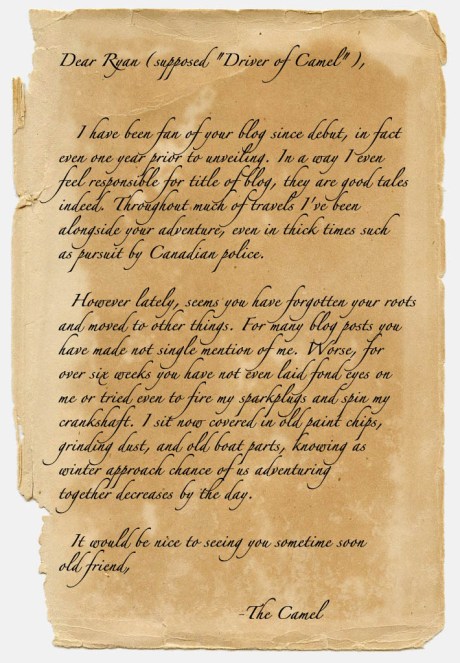 Dear Ryan (supposed "Driver of Camel"),
I have been fan of your blog since debut, in fact
even one year prior to unveiling. In a way I even
feel responsible for title of blog, they are good tales
indeed. Throughout much of travels I've been
alongside your adventure, even in thick times such
as pursuit by Canadian police.
However lately, seems you have forgotten your roots
and moved to other things. For many blog posts you
have made not single mention of me. Worse, for
over six weeks you have not even laid fond eyes on
me or tried even to fire my sparkplugs and spin my
crankshaft. I sit now covered in old paint chips,
grinding dust, and old boat parts, knowing as
winter approach chance of us adventuring
together decreases by the day.
It would be nice to seeing you sometime soon
old friend,
-The Camel